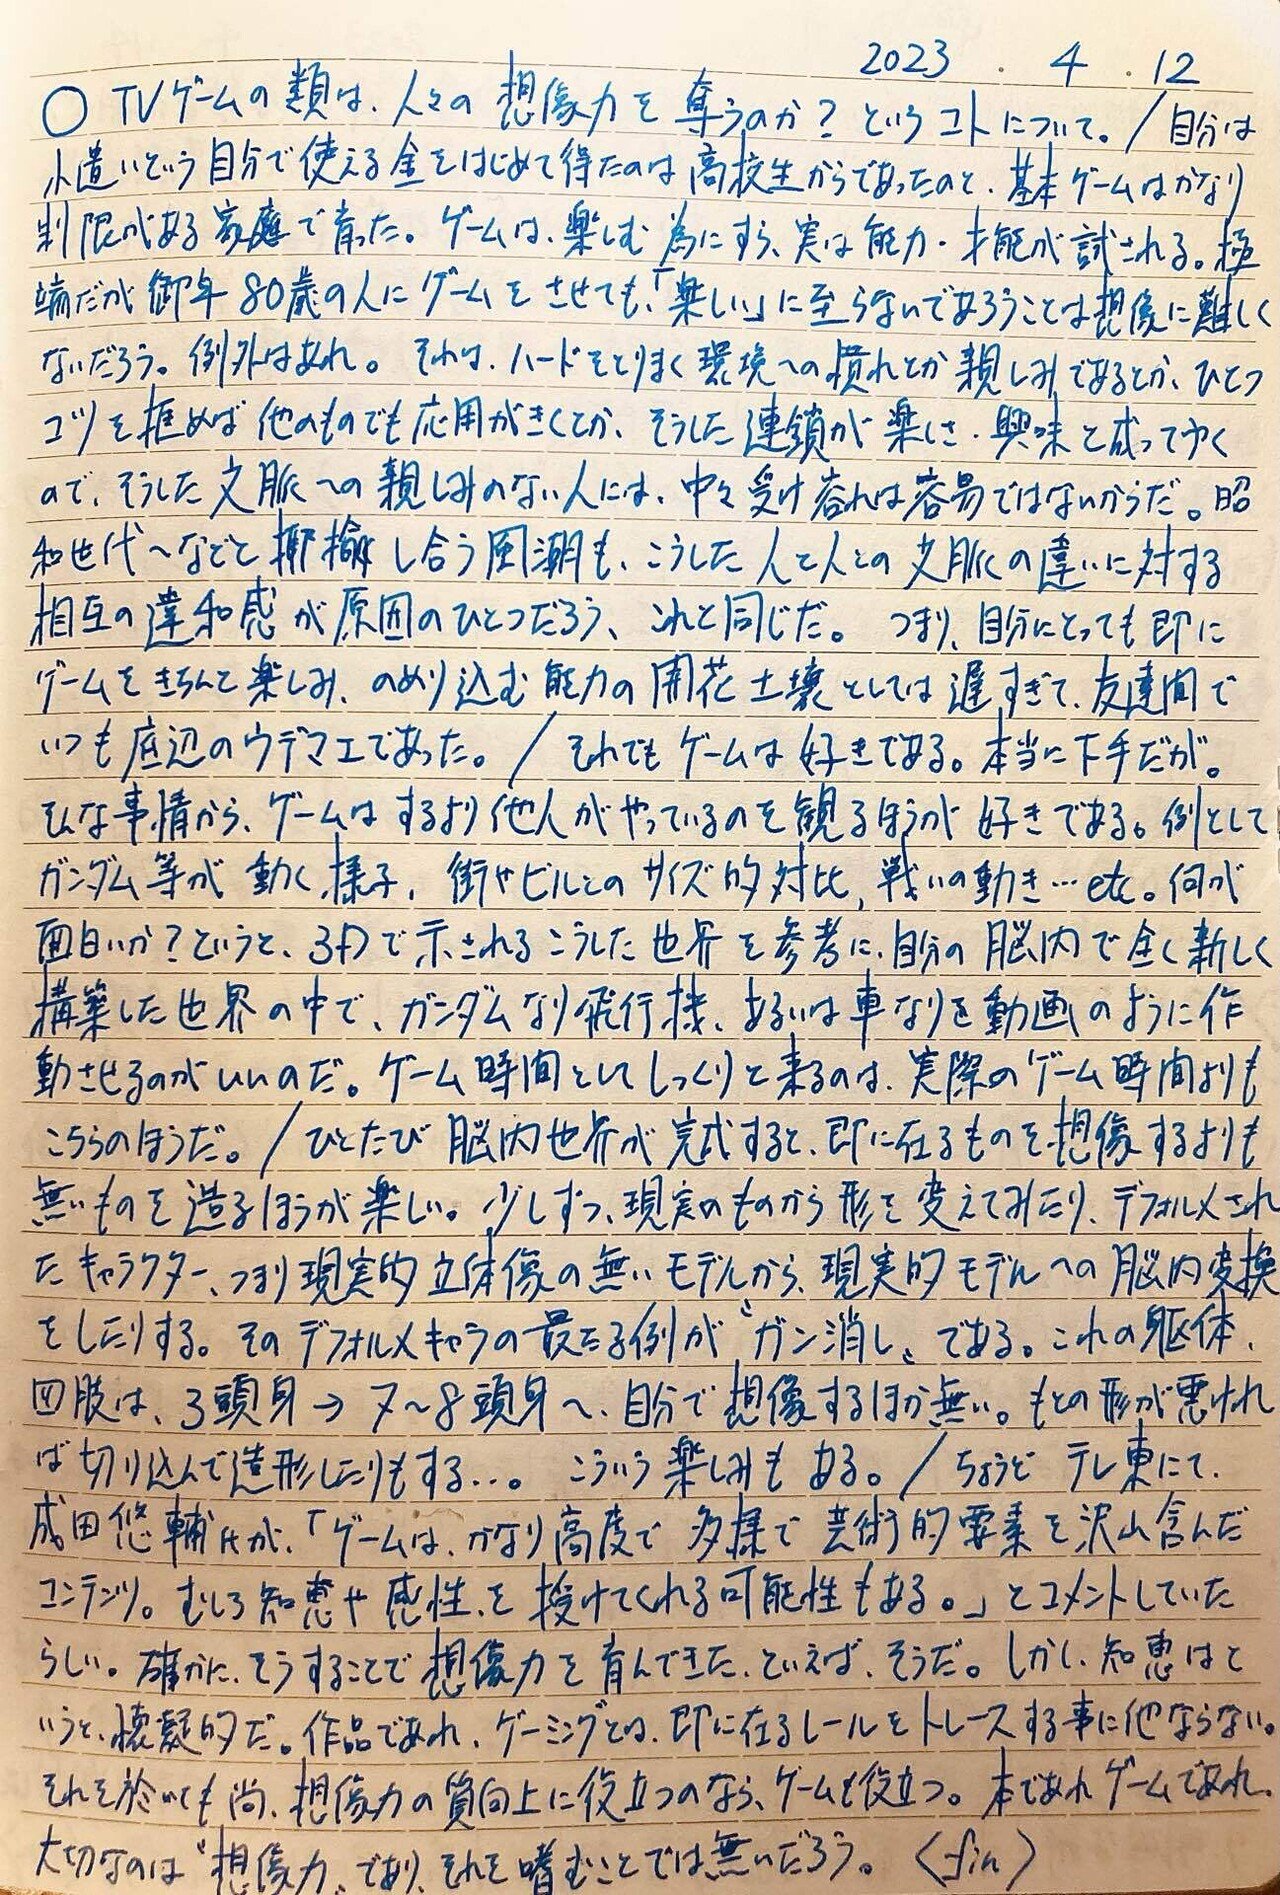 2023 . 4 . 12
○ TVゲームの類は、人々の想像力を奪うのか？というコトについて。/自分は
小遣いという自分で使える金をはじめて得たのは高校生からであったのと、基本ゲームはかなり
制限がある家庭で育った。ゲームは、楽しむ為にすら、実は能力・才能が試される。極
端だが御年80歳の人にゲームをさせても、「楽しい」に至らないであろうことは想像に難しく
ないだろう。例外はあれ。それは、ハードをとりまく環境への慣れとか親しみであるとか、ひとつ
コツを掴めば他のものでも応用がきくとか、そうした連鎖が楽しさ・興味と成ってゆく
ので、そうした文脈への親しみのない人には、中々受け容れは容易ではないからだ。昭
和世代〜などと揶揄し合う風潮も、こうした人と人との文脈の違いに対する
相互の違和感が原因のひとつだろう、これと同じだ。つまり、自分にとっても即に
ゲームをきちんと楽しみ、のめり込む能力の開花土壌としては遅すぎて、友達間で
いつも底辺のウデマエであった。/それでもゲームは好きである。本当に下手だが。
そんな事情から、ゲームはするより他人がやっているのを観るほうが好きである。例として
ガンダム等が動く様子、街やビルとのサイズ的対比、戦いの動き…etc。何が
面白いか？というと、3Dで示されるこうした世界を参考に、自分の脳内で全く新しく
構築した世界の中で、ガンダムなり飛行機、あるいは車なりを動画のように作
動させるのがいいのだ。ゲーム時間としてしっくりと来るのは、実際のゲーム時間よりも
こちらのほうだ。/ひとたび脳内世界が完成すると、即に在るものを想像するよりも
無いものを造るほうが楽しい。少しずつ、現実のものから形を変えてみたり、デフォルメされ
たキャラクター、つまり現実的立体像の無いモデルから、現実的モデルへの脳内変換
をしたりする。そのデフォルメキャラの最たる例が〝ガン消し〟である。これの躯体、
四肢は、3頭身→7〜8頭身へ、自分で想像するほか無い。もとの形が悪けれ
ば切り込んで造形したりもする…。こういう楽しみもある。/ちょうどテレ東にて、
成田悠輔氏が、「ゲームは、かなり高度で多様で芸術的要素を沢山含んだ
コンテンツ。むしろ知恵や感性を授けてくれる可能性もある。」とコメントしていた
らしい。確かに、そうすることで想像力を育んできた、といえば、そうだ。しかし、知恵はと
いうと、懐疑的だ。作品であれ、ゲーミングとは、即に在るレールをトレースする事に他ならない。
それを於いても尚、想像力の質向上に役立つのなら、ゲームも役立つ。本であれゲームであれ、
大切なのは〝想像力〟であり、それを嗜むことでは無いだろう。〈fin〉